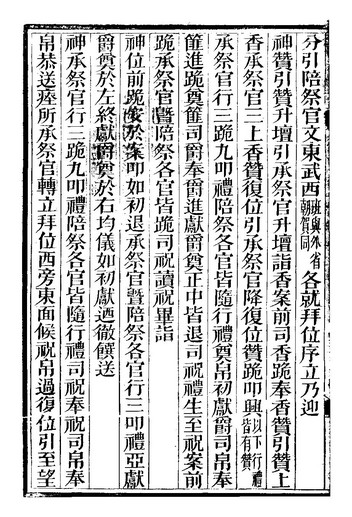 分引陪祭官文東武西班與外省朝賀同各就拜位序立乃迎
神贊引贊升壇引承祭官升壇詣香案前司香跪奉香贊引贊上
香承祭官三上香贊復位引承祭官降復位贊跪叩興以下行禮皆有贊
承祭官行三跪九叩禮陪祭各官皆隨行禮奠帛初獻爵司帛奉
篚進跪奠篚司爵奉爵進獻爵奠正中皆退司祝禮生至祝案前
跪承祭官曁陪祭各官皆跪司祝讀祝畢詣
神位前跪安於案叩如初退承祭官曁陪祭各官行三叩禮亞獻
爵奠於左終獻爵奠於右均儀如初獻迺徹饌送
神承祭官行三跪九叩禮陪祭各官皆隨行禮司祝奉祝司帛奉
帛恭送瘞所承祭官轉立拜位西旁東面候祝帛過復位引至望